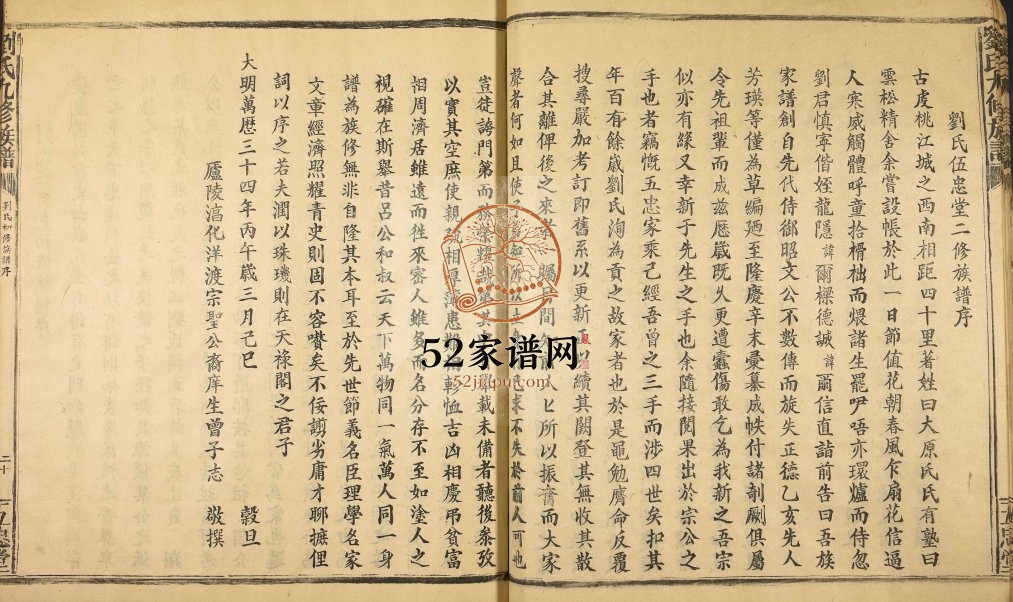 劉氏伍忠堂二修族譜序
古虔桃江城之西南相距四十里著姓曰大原氏氏有塾曰
雲松精舍余嘗設帳於此一日節值花朝春風乍扇花信逼
人寒威觸體呼童拾榾柮而煨諸生罷咿唔亦環爐而侍忽
劉君慎寧偕姪龍隱諱爾樑德誠諱爾信直詣前告曰吾族
家譜創自先代侍御昭文公不數傳而旋失正德乙亥先人
芳瑛等僅為草編廼至隆慶辛未彙纂成帙付諸剞劂俱屬
令先祖輩而成茲歷歲既久更遭蠹傷敢乞為我新之吾宗
似亦有緣又幸新子先生之手也余隨接閱果出於宗公之
手也者竊慨五忠家乘已經吾曾之三手而涉四世矣扣其
年百有餘歲劉氏洵為貢之故家者也於是黽勉膺命反覆
搜尋嚴加考訂即舊系以更新 以續其闕登其無收其散
合其離俾後之來者 間 前人 所以振書而大家
聲者何如且使子 求不失於前人可也
豈徒誇門第而 載未備者聽後叅攷
以實其空庶使親 相厚 患難 恤吉凶相慶弔貧富
相周濟居雖遠而徃來密人雖多而名分存不至如塗人之
視確在斯舉昔呂公和叔云天下萬物同一氣萬人同一身
譜為族修無非自隆其本耳至於先世節義名臣理學名家
文章經濟照耀青史則固不容喙矣不佞謭劣庸才聊摭俚
詞以序之若夫潤以珠璣則在天祿閣之君子
大明萬歷三十四年丙午歲三月己巳 穀旦
廬陵滈化洋渡宗聖公裔庠生曾子志 敬撰
劉氏九修族譜
劉氏初修族譜序
二十
五忠堂
52家谱网
52jiapu.com